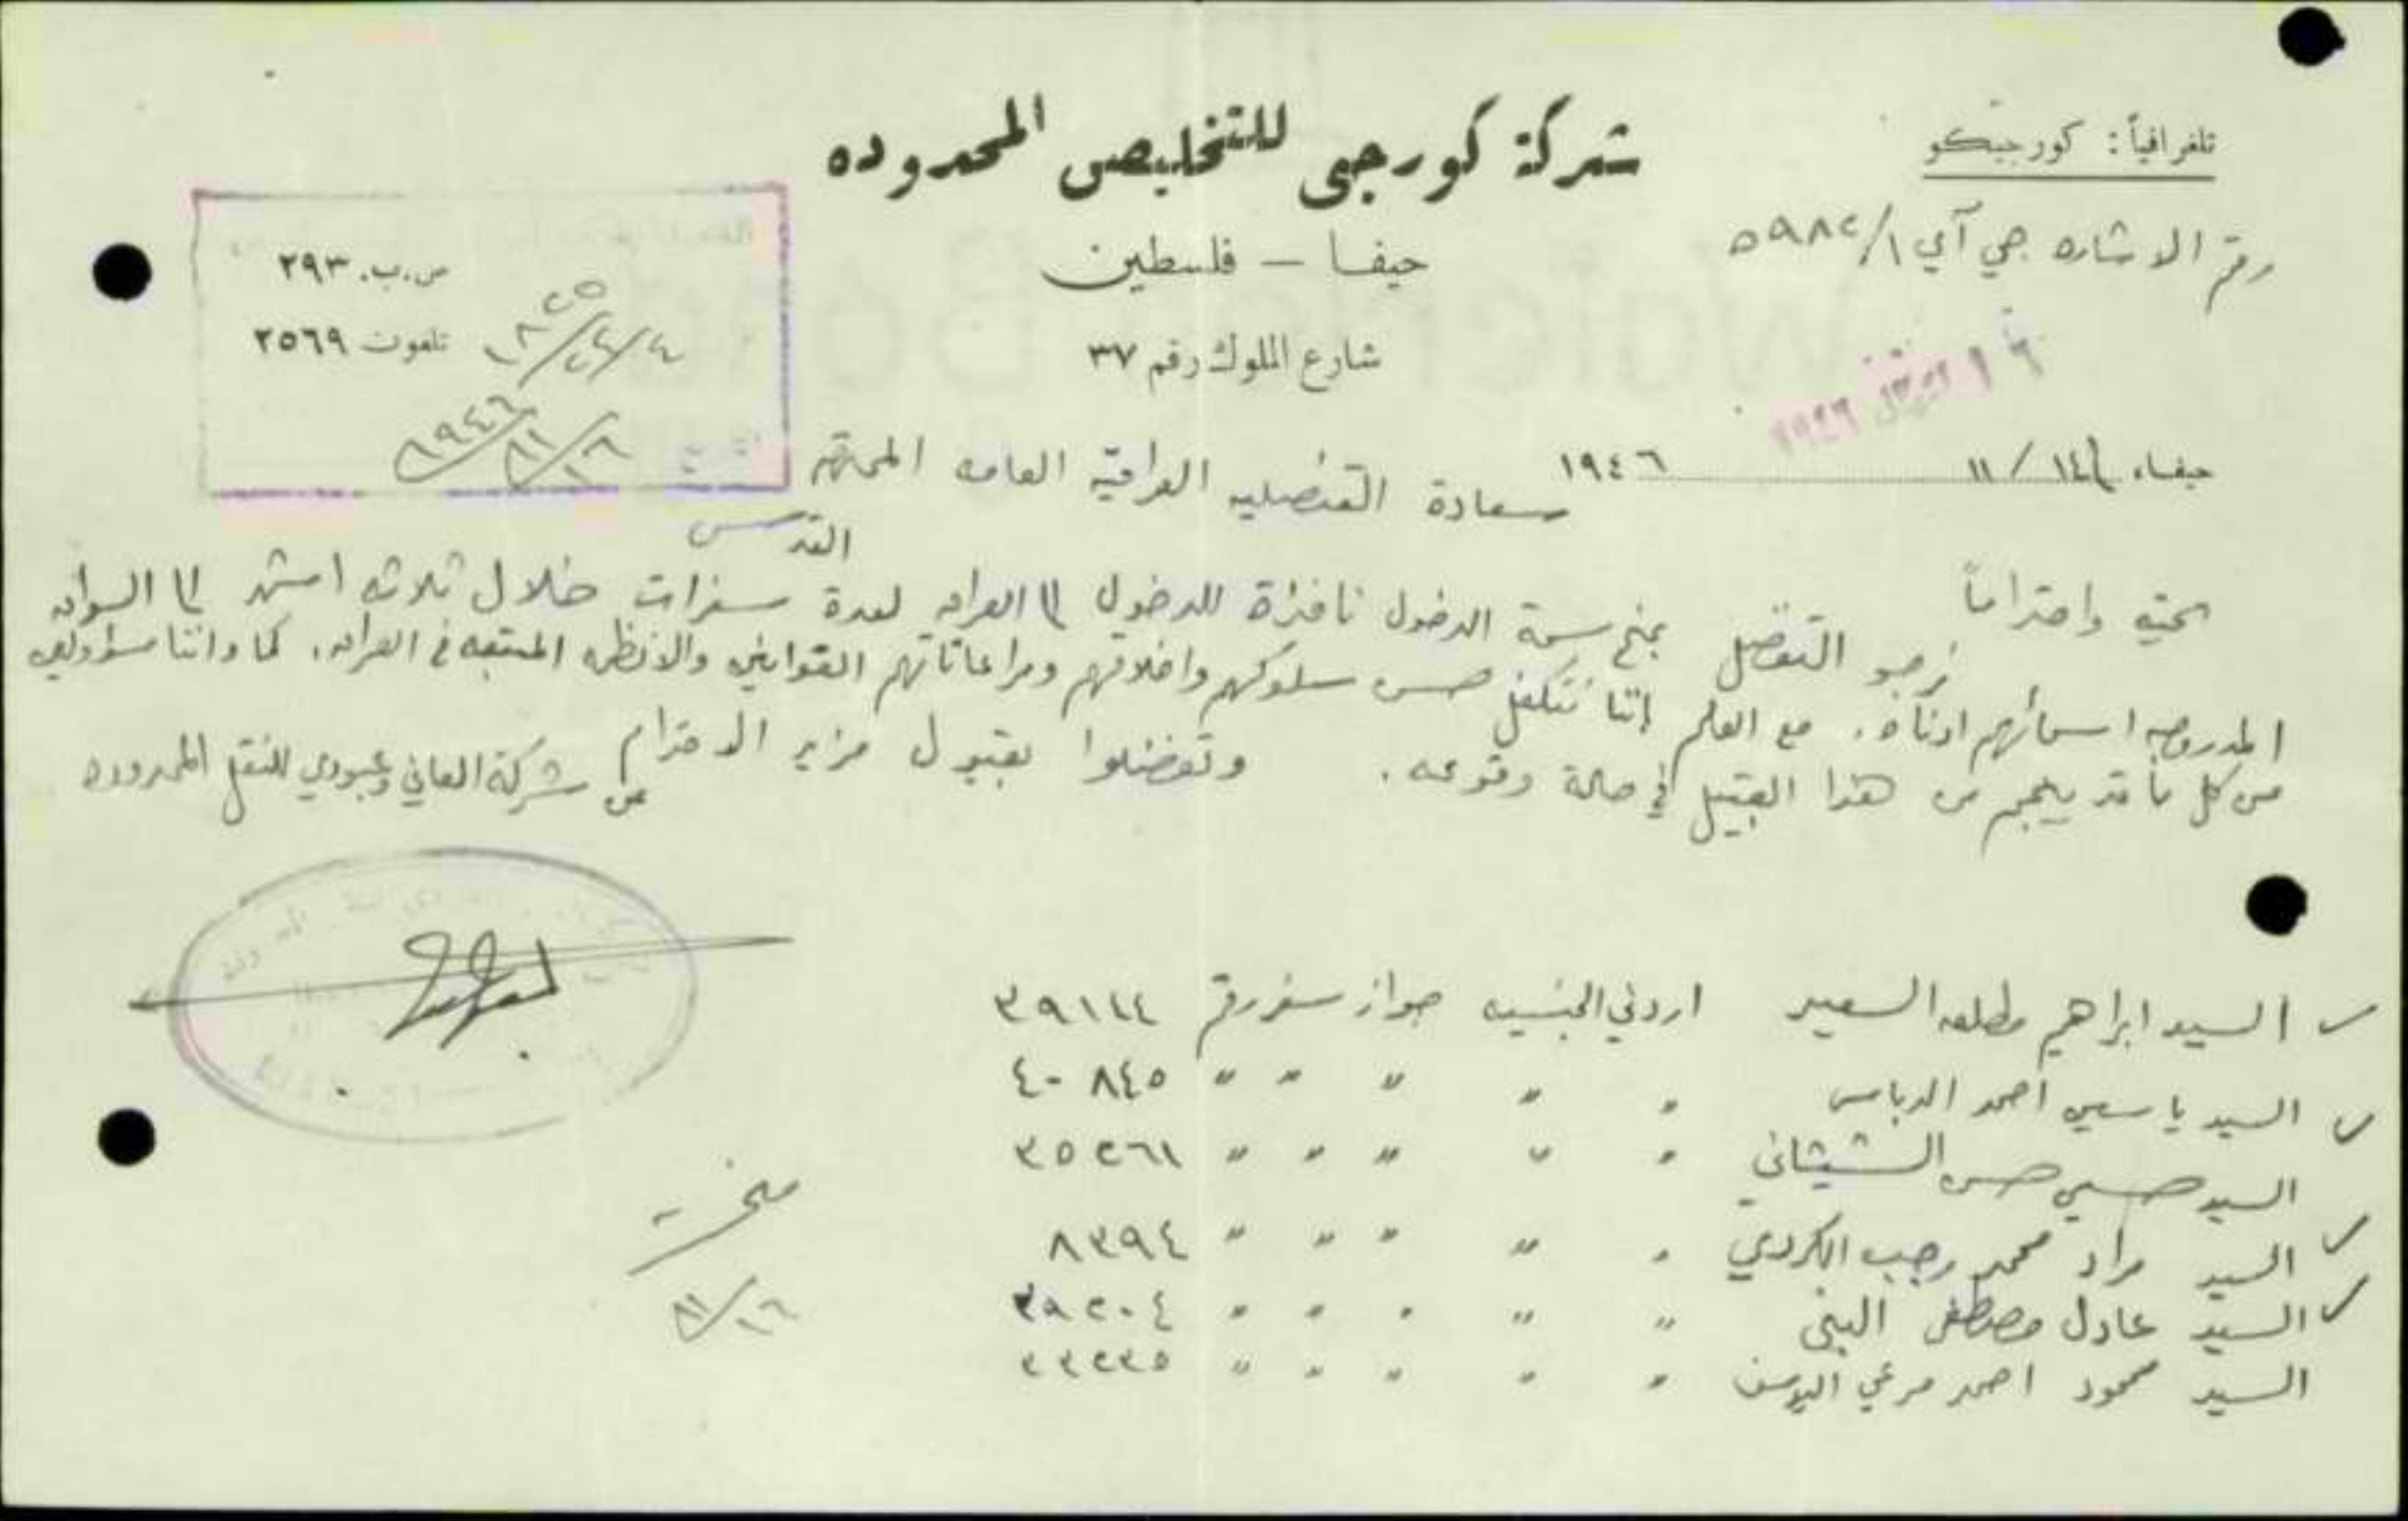 تلغرافياً: كورجيكو
شركة كورجي للتخليص المحدوده
حيفا – فلسطين
شارع الملوك رقم ٣٧
ص.ب. ٢٩٣
تلفون ٢٥٦٩
رقم الاشاره جي آي ١/٥٩٨٢
١٨٢٥
٤/٢٤/٢
١٩٤٦/١١/١٦
حيفا، ١٤ / ١١ ١٩٤٦
سعادة القنصليه العراقيه العامه المحترمه
القدس
تحيه واحتراماً
نرجو التفضل بمنح سمة الدخول نافذة للدخول الى العراق لعدة سفرات خلال ثلاثة اشهر الى السواق
المدروجه اسمائهم ادناه. مع العلم اننا نتكفل حسن سلوكهم واخلاقهم ومراعاتهم القوانين والانظمه المتبعه في العراق. كما واننا مسؤولين
من كل ما قد ينجم من هذا القبيل في حالة وقوعه. وتفضلوا بقبول مزيد الاحترام
عن شركة العاني وعبودي للنقل المحدوده
السيد ابراهيم طلعه السعيد اردني الجنسيه جواز سفر رقم ٣٩١٤٤
السيد ياسين احمد الدباس " " " " " ٤٠٨٤٥
السيد حسين حسن الشيشاني " " " " " ٣٥٢٦١
السيد مراد محمد رجب الكردي " " " " " ٨٣٩٤
السيد عادل مصطفى البني " " " " " ٣٩٢٠٤
السيد محمود احمد مرعي " " " " " ٣٣٢٣٥
منحت
١١/١٦